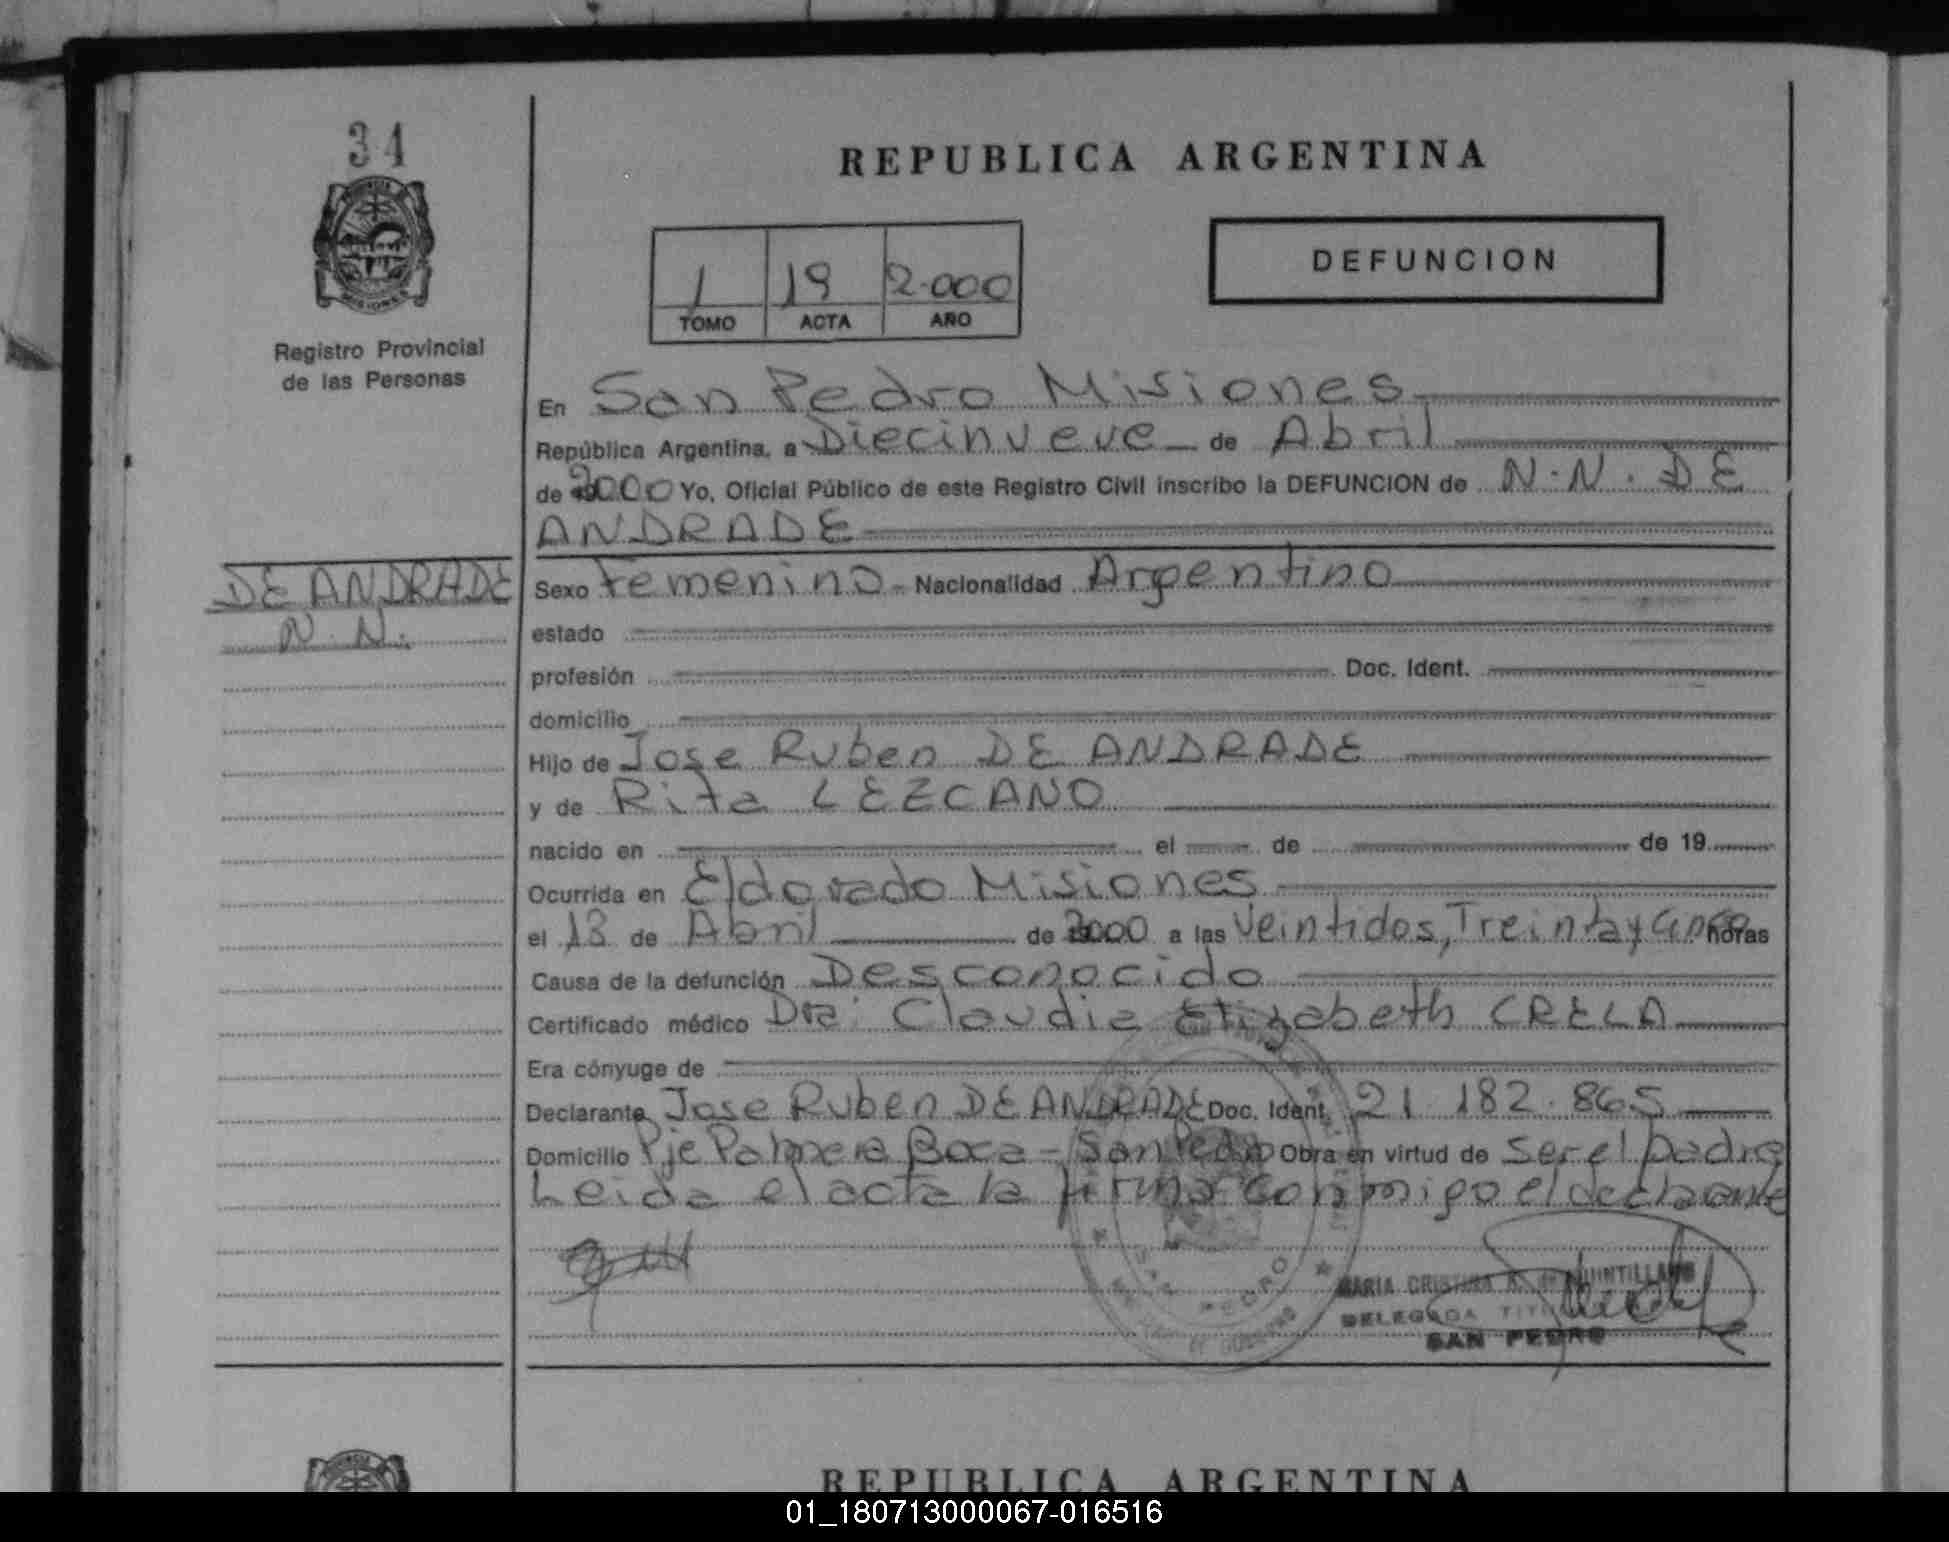 34
PROVINCIA
MISIONES
Registro Provincial
de las Personas
REPUBLICA ARGENTINA
1 19 2.000
TOMO ACTA AÑO
DEFUNCION
En San Pedro Misiones
República Argentina, a Diecinueve de Abril
de 2000 Yo, Oficial Público de este Registro Civil inscribo la DEFUNCION de N.N. DE
ANDRADE
DE ANDRADE
N.N.
Sexo Femenino - Nacionalidad Argentino
estado
profesión Doc. Ident.
domicilio
Hijo de Jose Ruben DE ANDRADE
y de Rita LEZCANO
nacido en el de de 19
Ocurrida en Eldorado Misiones
el 13 de Abril de 2000 a las Veintidos, Treinta y Cinco horas
Causa de la defunción Desconocido
Certificado médico Dra. Claudia Elizabeth CRELA
Era cónyuge de
Declarante Jose Ruben DE ANDRADE Doc. Ident. 21.182.865
Domicilio Pje Palmera Boca - San Pedro Obra en virtud de ser el padre
Leida el acta la firma conmigo el declarante
SAN PEDRO
MARIA CRISTINA R. de QUINTILLANO
DELEGADA TITULAR
SAN PEDRO
REPUBLICA ARGENTINA
01_180713000067-016516